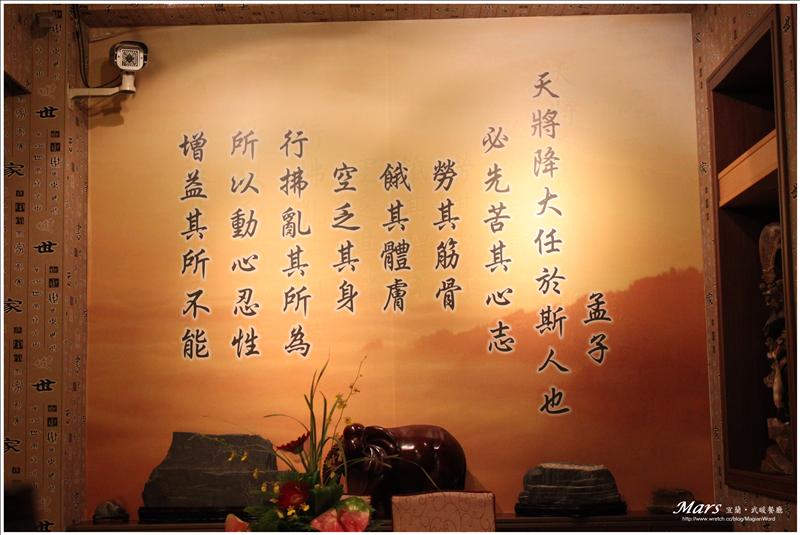 孟子
天將降大任於斯人也
必先苦其心志
勞其筋骨
餓其體膚
空乏其身
行拂亂其所為
所以動心忍性
增益其所不能
世
家
世
世
家
世
家
世
家
Mars 宜蘭·武暖餐廳
http://www.wretch.cc/blog/MagianWord